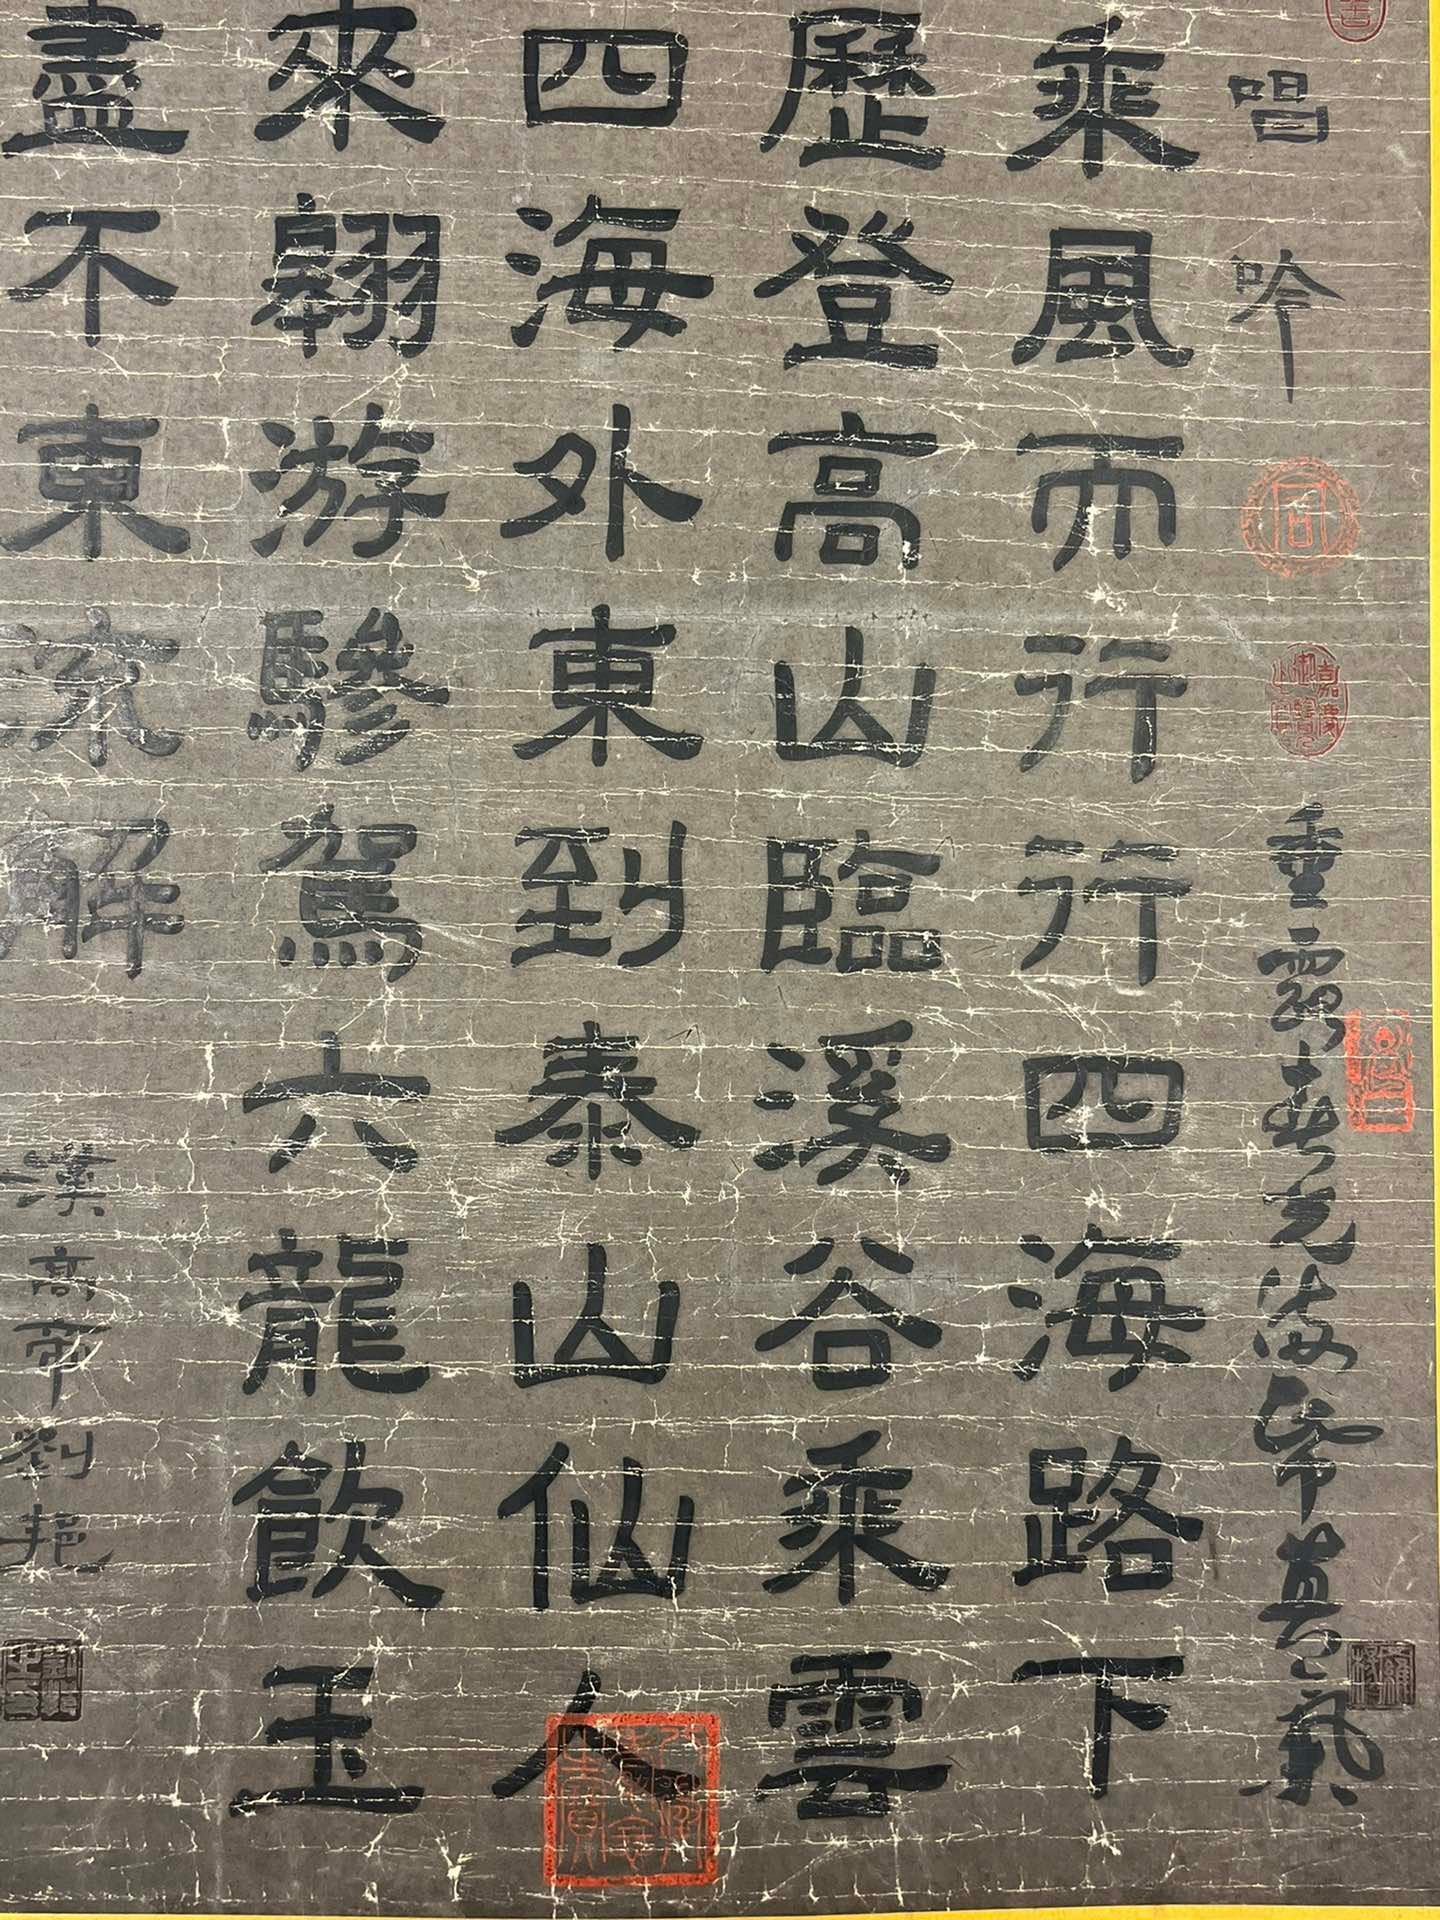 唱吟
垂露春光滿
乘風而行行四海路下
歷登高山臨溪谷乘雲
四海外東到泰山仙人
來翱游驂駕六龍飲玉
盡不東流解
漢高帝劉
嘉慶御覽之寶